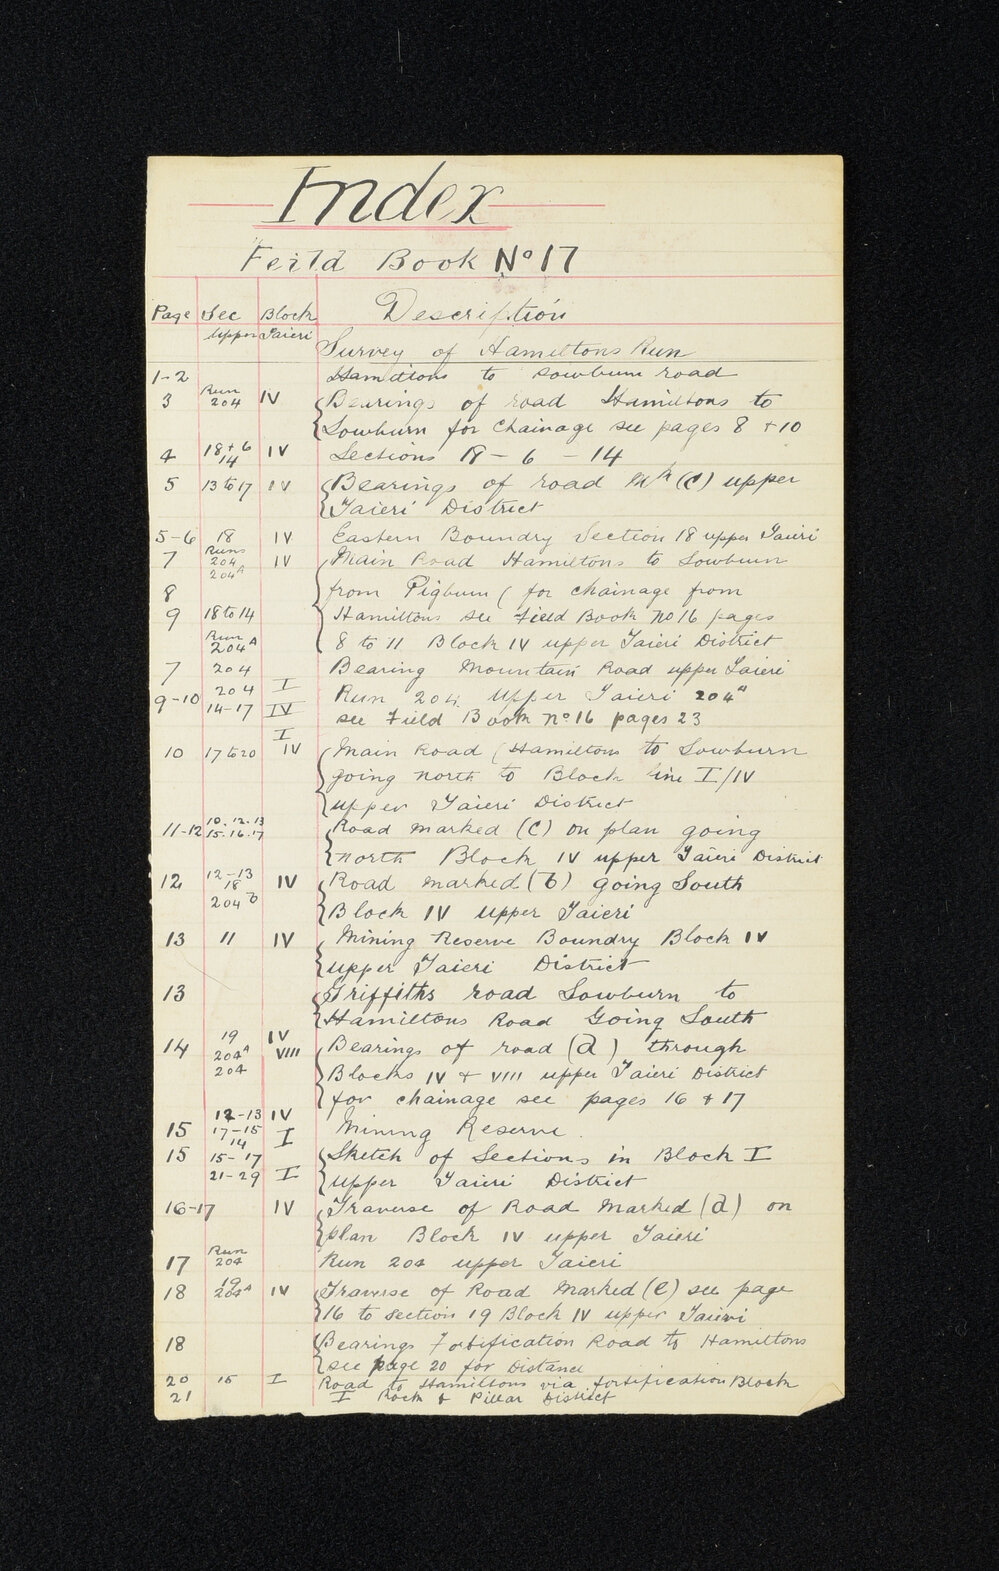 Index
Feild Book No 17
Page Sec Block Description
Upper Taieri
Survey of Hamiltons Run
1-2 Hamiltons to Sowburn road
3 Run 204 IV Bearings of road Hamiltons to
Sowburn for chainage see pages 8 + 10
4 18+6 14 IV Sections 18 - 6 - 14
5 13 to 17 IV Bearings of road (C) upper
Taieri District
5-6 18 IV Eastern Boundry Section 18 upper Taieri
7 Runs 204 204A IV Main Road Hamiltons to Sowburn
8 from Pigburn ( for chainage from
9 18 to 14 Hamiltons see Field Book No 16 pages
Run 204A 8 to 11 Block IV upper Taieri District
7 204 Bearing Mountain Road upper Taieri
9-10 204 I Run 204 Upper Taieri 204A
14-17 IV see Field Book No 16 pages 23
10 17 to 20 I IV Main Road (Hamiltons to Sowburn
going north to Block line I/IV
upper Taieri District
11-12 10.12.13 15.16.17 Road marked (C) on plan going
north Block IV upper Taieri District
12 12-13 18 204 b IV Road marked (b) going South
Block IV Upper Taieri
13 11 IV Mining Reserve Boundry Block IV
upper Taieri District
13 Griffiths road Sowburn to
Hamiltons Road Going South
14 19 204A 204 IV VIII Bearings of road (a) through
Blocks IV + VIII upper Taieri District
for chainage see pages 16 + 17
15 12-13 17-15 14 IV I Mining Reserve.
15 15-17 21-29 I Sketch of Sections in Block I
upper Taieri District
16-17 IV Traverse of Road Marked (a) on
plan Block IV upper Taieri
17 Run 204 Run 204 upper Taieri
18 19 204A IV Traverse of Road Marked (e) see page
16 to section 19 Block IV upper Taieri
18 Bearings Fortification Road to Hamiltons
see page 20 for Distance
20 15 I Road to Hamiltons via fortification Block
21 I Rock & Pillar District